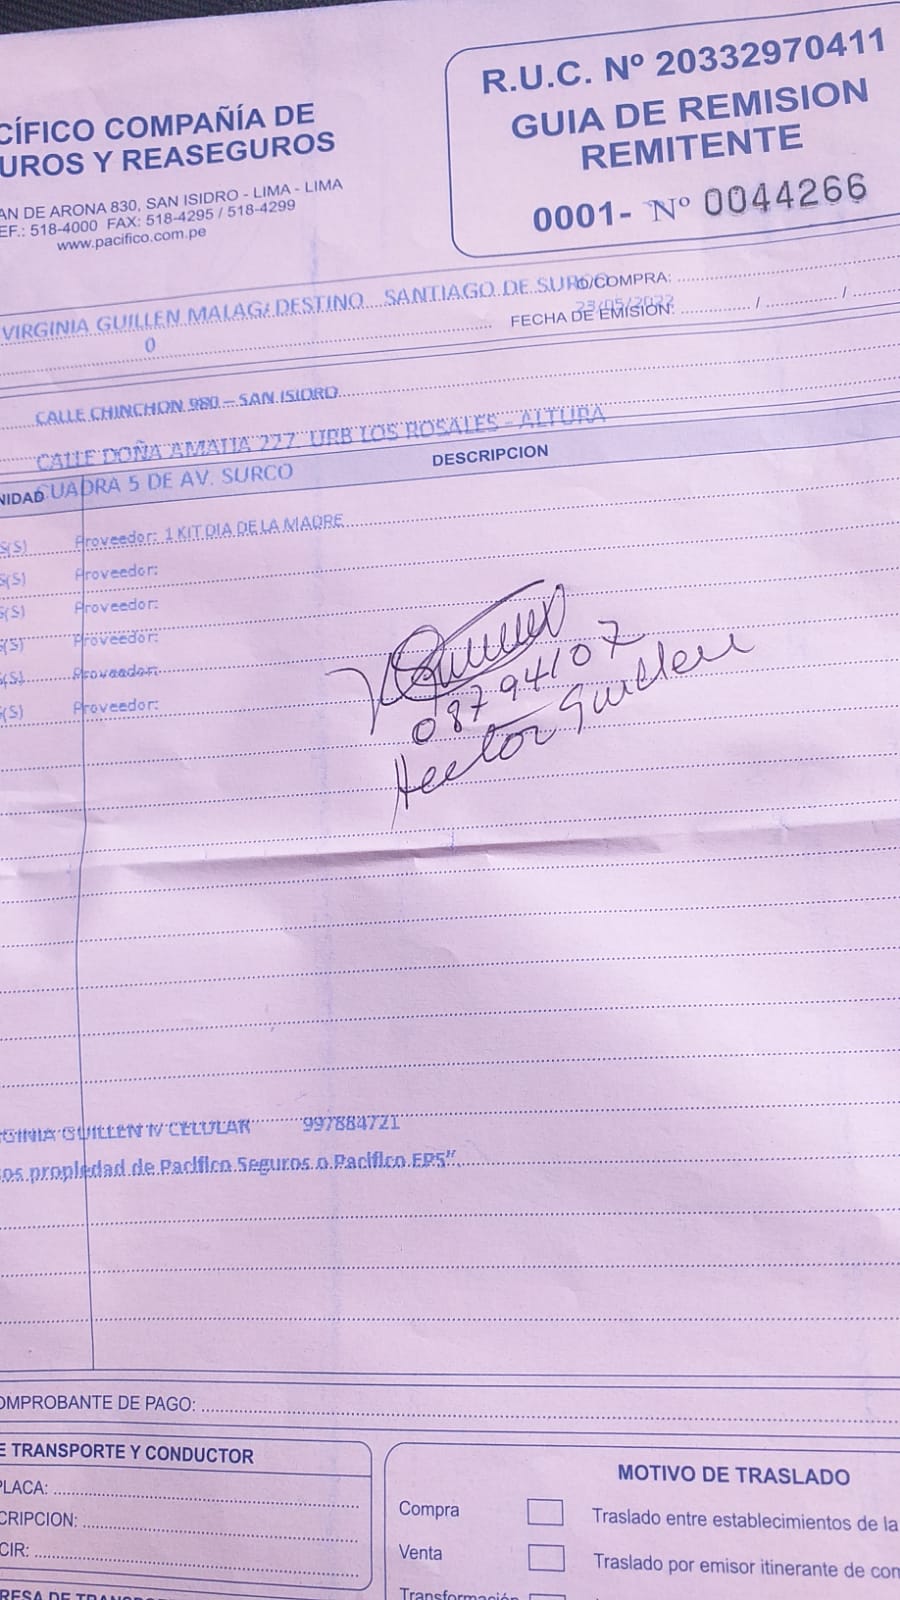 CÍFICO COMPAÑÍA DE
UROS Y REASEGUROS
AN DE ARONA 830, SAN ISIDRO - LIMA - LIMA
EF.: 518-4000 FAX: 518-4295 / 518-4299
www.pacifico.com.pe
R.U.C. Nº 20332970411
GUIA DE REMISION
REMITENTE
0001- Nº 0044266
VIRGINIA GUILLEN MALAGA DESTINO SANTIAGO DE SURCO
O/COMPRA:
0
23/05/2022
FECHA DE EMISIÓN: / /
CALLE CHINCHON 980 – SAN ISIDRO
CALLE DOÑA AMALIA 227. URB LOS ROSALES - ALTURA
CUADRA 5 DE AV. SURCO
NIDAD DESCRIPCION
S(S) Proveedor: 1 KIT DIA DE LA MADRE
S(S) Proveedor:
S(S) Proveedor:
S(S) Proveedor:
S(S) Proveedor:
S(S) Proveedor:
08794107
Hector Guillen
GINIA GUILLEN M CELULAR 997884721
os propiedad de Pacifico Seguros o Pacifico EPS".
OMPROBANTE DE PAGO:
E TRANSPORTE Y CONDUCTOR
PLACA:
CRIPCION:
CIR:
RESA DE TRANS
MOTIVO DE TRASLADO
Compra
Traslado entre establecimientos de la
Venta
Traslado por emisor itinerante de com
Transformación